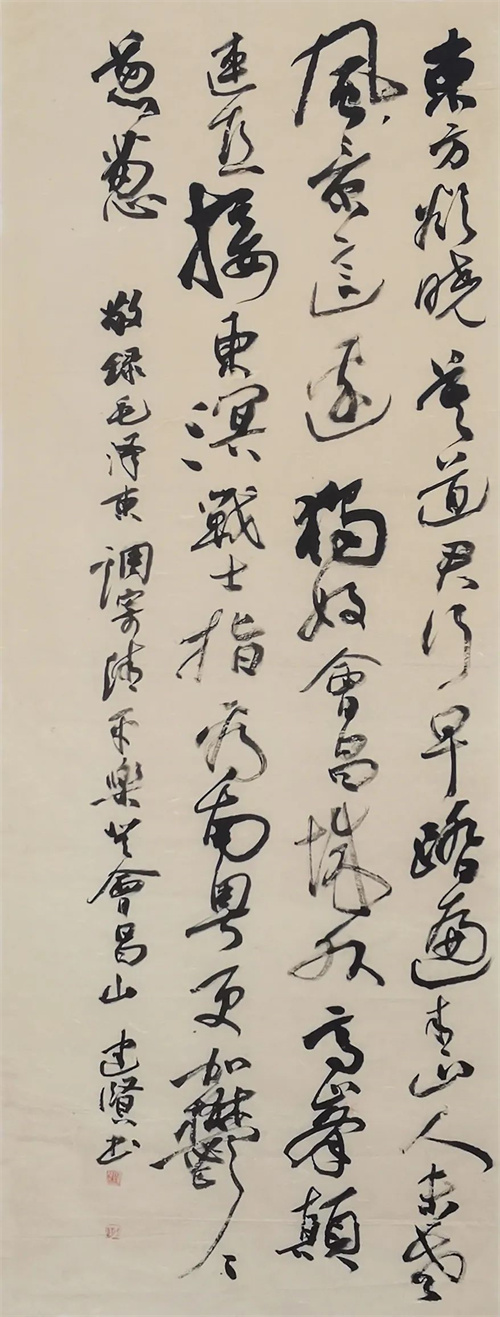 東方欲曉莫道君行早踏遍青山人未老
風景這邊獨好會昌城外高峯顛
連直接東溟戰士指看南粵更加鬱々
葱葱 敬録毛泽東調寄清平樂登會昌山 建賢书